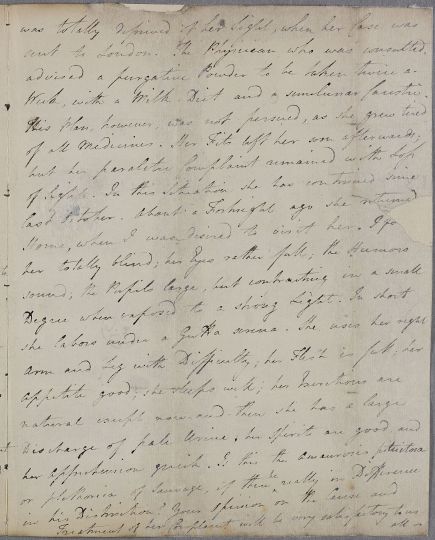 was totally deprived of her Sight, when her Case was
sent to London. The Physician who was consulted
advised a purgative Powder to be taken twice a
Week, with a Milk Diet and a semilunar Caustic.
This Plan, however, was not persued, as she grew tired
of all Medicines. Her Fits left her soon afterwards;
but her paralitic Complaint remained with loss
of Sight. In this Situation she has continued since
last October. About a Fortnight ago she returned
Home, when I was desired to visit her. I fo
her totally blind; her Eyes rather full; the Humors
sound; the Pupils large, but contracting in a small
Degree when exposed to a strong Light. In short
she labors under a Gutta serena. She uses her right
Arm and Leg with Difficulty; her Flesh is full; her
appetite good; she sleeps well; her Secretions are
natural except now-and-then she has a large
Discharge of pale Urine. her Spirits are good and
her Apprehension quick. Is this the Amaurosis pituitosa
or plethorica, of Sauvage, if there be really a Difference
in his Distinction? Your Opinion on the Cause and
Treatment of her Complaint will be very satisfactory to us
all